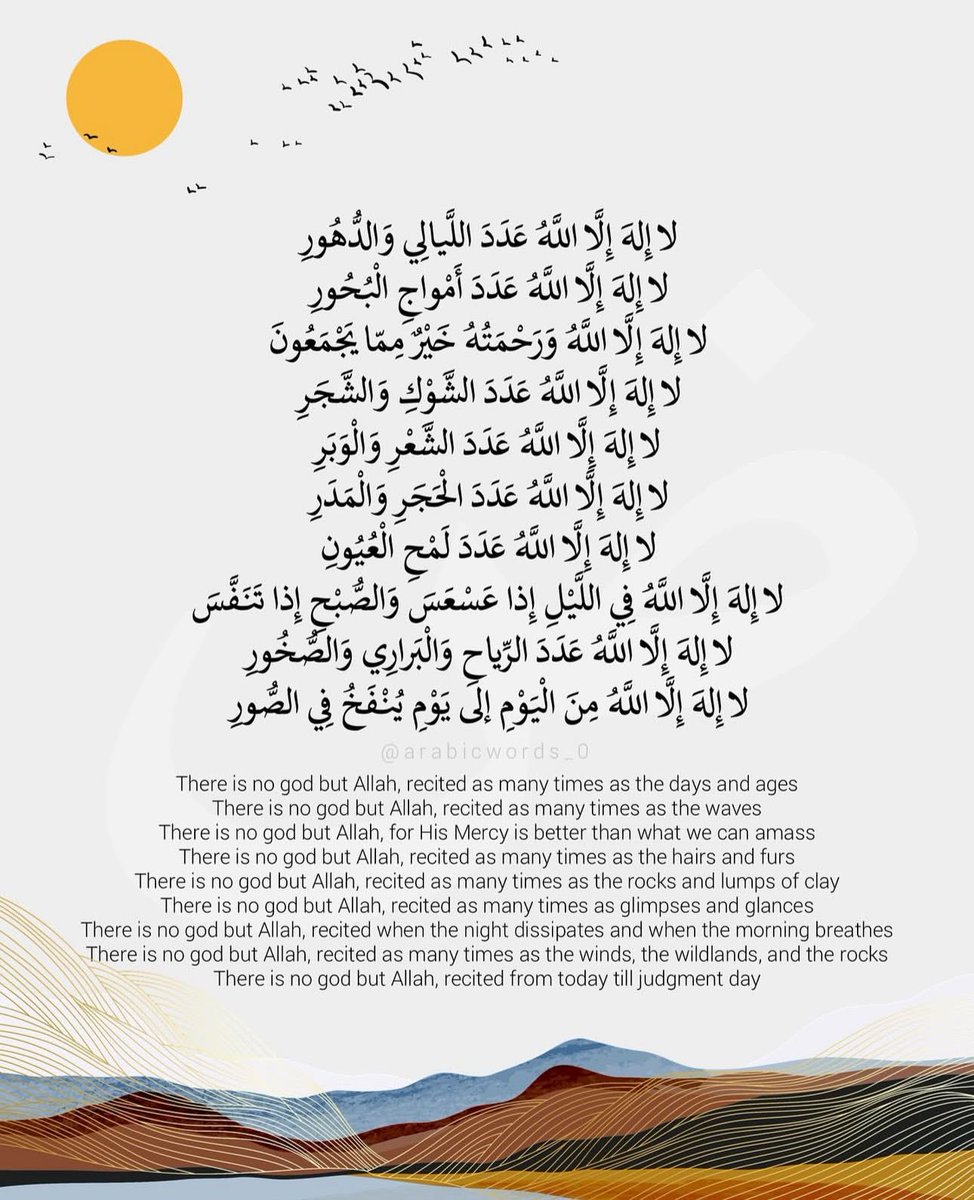 لا إِلهَ إِلَّا اللَّهُ عَدَدَ اللَّيالِي وَالدُّهُورِ
لا إِلهَ إِلَّا اللَّهُ عَدَدَ أَمْواجِ الْبُحُورِ
لا إِلهَ إِلَّا اللَّهُ وَرَحْمَتُهُ خَيْرٌ مِمّا يَجْمَعُونَ
لا إِلهَ إِلَّا اللَّهُ عَدَدَ الشَّوْكِ وَالشَّجَرِ
لا إِلهَ إِلَّا اللَّهُ عَدَدَ الشَّعْرِ وَالْوَبَرِ
لا إِلهَ إِلَّا اللَّهُ عَدَدَ الْحَجَرِ وَالْمَدَرِ
لا إِلهَ إِلَّا اللَّهُ عَدَدَ لَمْحِ الْعُيُونِ
لا إِلهَ إِلَّا اللَّهُ فِي اللَّيْلِ إِذا عَسْعَسَ وَالصُّبْحِ إِذا تَنَفَّسَ
لا إِلهَ إِلَّا اللَّهُ عَدَدَ الرِّياحِ وَالْبَرارِي وَالصُّخُورِ
لا إِلهَ إِلَّا اللَّهُ مِنَ الْيَوْمِ إِلى يَوْمِ يُنْفَخُ فِي الصُّورِ
@arabicwords_0
There is no god but Allah, recited as many times as the days and ages
There is no god but Allah, recited as many times as the waves
There is no god but Allah, for His Mercy is better than what we can amass
There is no god but Allah, recited as many times as the hairs and furs
There is no god but Allah, recited as many times as the rocks and lumps of clay
There is no god but Allah, recited as many times as glimpses and glances
There is no god but Allah, recited when the night dissipates and when the morning breathes
There is no god but Allah, recited as many times as the winds, the wildlands, and the rocks
There is no god but Allah, recited from today till judgment day